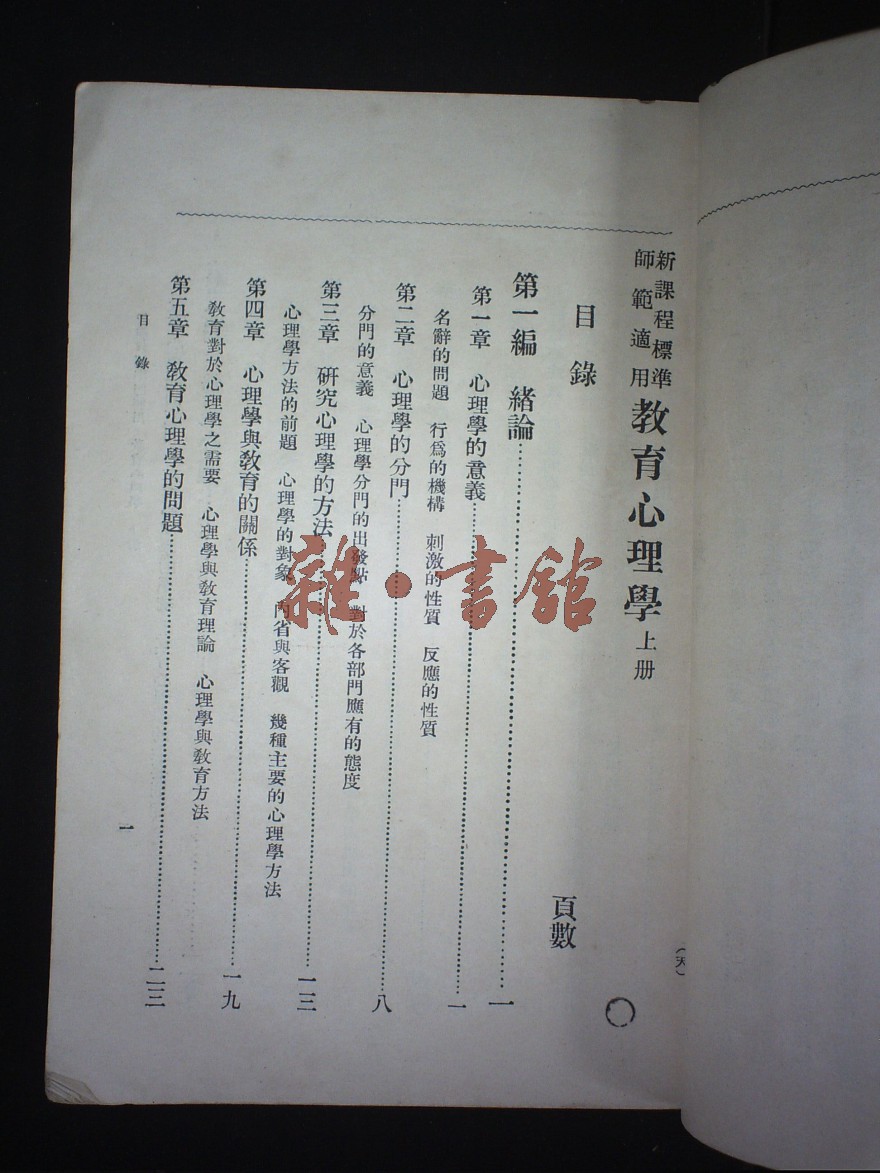 新課程標準
師範適用
教育心理學 上册
目錄
頁數
第一編 緒論……一
第一章 心理學的意義……一
名辭的問題 行爲的機構 刺激的性質 反應的性質
第二章 心理學的分門……八
分門的意義 心理學分門的出發點 對於各部門應有的態度
第三章 研究心理學的方法……一三
心理學方法的前題 心理學的對象 內省與客觀 幾種主要的心理學方法
第四章 心理學與教育的關係……一九
教育對於心理學之需要 心理學與教育理論 心理學與教育方法
第五章 教育心理學的問題……二三
目錄
一
(天)
雜·書館